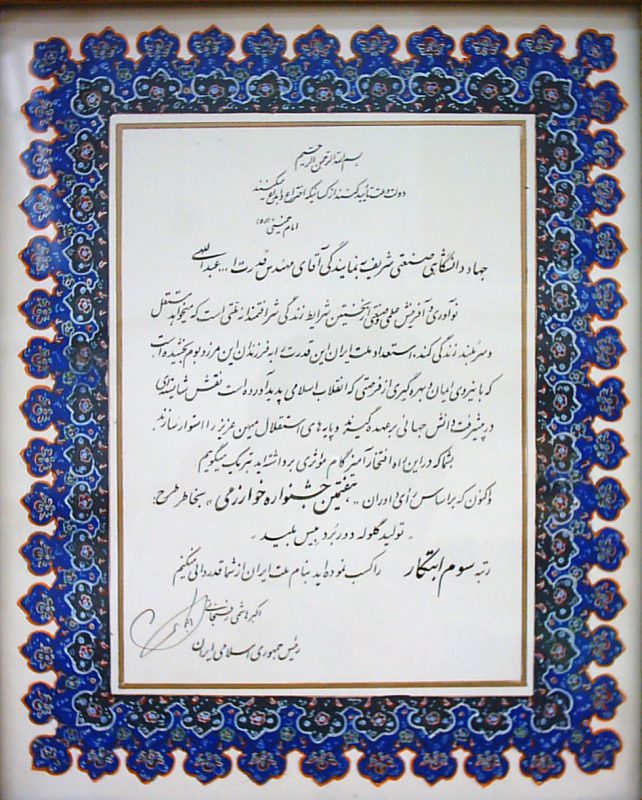 بسم الله الرحمن الرحیم
دولت و ملت تایید کنند از کسانیکه اختراع و ابداع میکنند
امام خمینی (ره)
جهاد دانشگاهی صنعتی شریف به نمایندگی آقای مهندس قدرت ا... عبداللهی
نوآوری و آفرینش علمی و صنعتی از نخستین شرایط زندگی شرافتمندانه ملتی است که میخواهد مستقل
و سربلند زندگی کند. استعداد ملت ایران این قدرت را به فرزندان این مرز و بوم بخشیده است
که با نیروی ایمان و بهره گیری از فرصتی که انقلاب اسلامی پدید آورده است نقش شایسته ای
در پیشرفت دانش جهانی بر عهده گیرند و پایه های استقلال میهن عزیز را استوار سازند.
بشما که در این راه افتخار آمیز گام موثری برداشته اید تبریک میگویم
و اکنون که بر اساس رأی داوران « هفتمین جشنواره خوارزمی » بخاطر طرح:
« تولید گلوله دوربرد بیس بلید »
رتبه سوم ابتکار را کسب نموده اید بنام ملت ایران از شما قدردانی میکنیم
اکبر هاشمی رفسنجانی
رئیس جمهوری اسلامی ایران